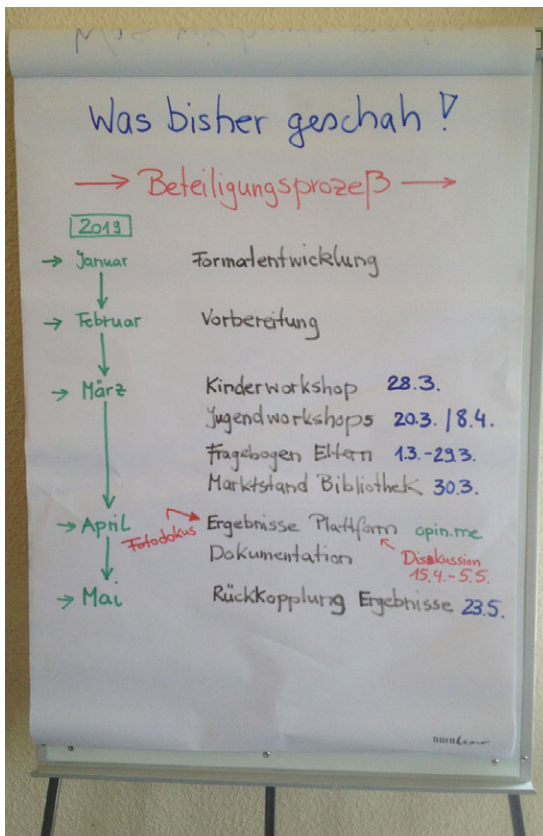 Was bisher geschah!
→ Beteiligungsprozeß →
2019
→ Januar Formatentwicklung
→ Februar Vorbereitung
→ März Kinderworkshop 28.3.
Jugendworkshops 20.3. / 8.4.
Fragebogen Eltern 1.3.-29.3.
Marktstand Bibliothek 30.3.
→ April Ergebnisse Plattform opin.me
Fotodokus
Dokumentation
Diskussion
15.4.-5.5.
→ Mai Rückkopplung Ergebnisse 23.5.